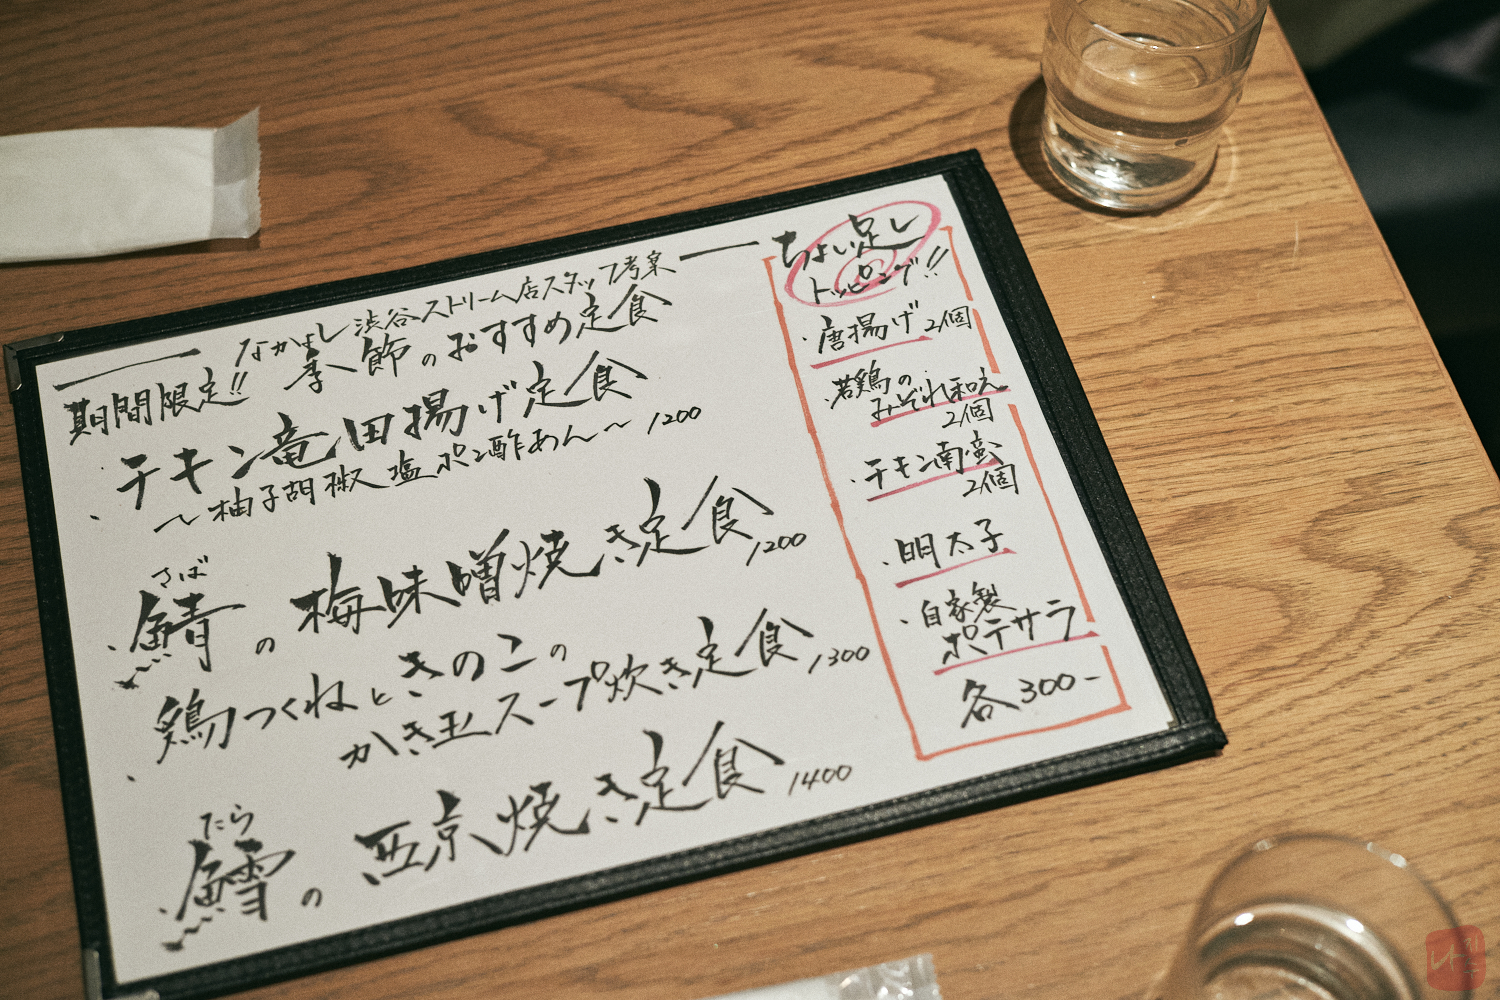 なかよし渋谷ストリーム店スタッフ考案
期間限定!! 季節のおすすめ定食
・チキン竜田揚げ定食
～柚子胡椒塩ポン酢あん～ 1200
さば
・鯖の梅味噌焼き定食 1200
・鶏つくねときのこの
かき玉スープ炊き定食 1300
たら
・鱈の西京焼き定食 1400
ちょい足し
トッピング!!
・唐揚げ 2個
・若鶏の
みぞれ和え
2個
・チキン南蛮
2個
・明太子
・自家製
ポテサラ
各300-